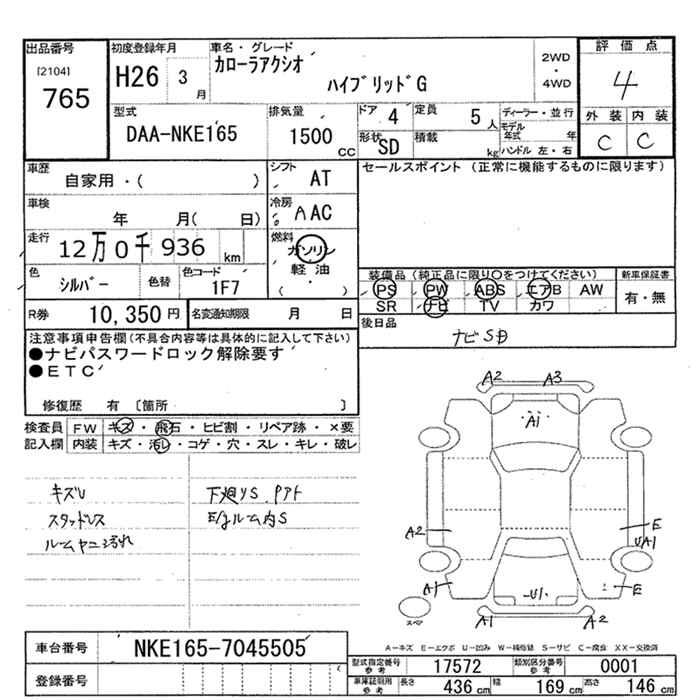 出品番号
[2104]
765
初度登録年月
H26 3 月
車名・グレード
カローラアクシオ
ハイブリッドG
2WD
・
4WD
評価点
4
外装 内装
C C
型式
DAA-NKE165
排気量
1500 CC
ドア 4
定員 5 人
ディーラー・並行
モデル年式 年
形状 SD
積載 kg
ハンドル 左・右
車歴
自家用・( )
シフト AT
セールスポイント (正常に機能するものに限ります)
車検
年 月( 日)
冷房
AAC
走行
12万0千936 km
燃料
ガソリン
軽油
( ・ )
色
シルバー
色替
色コード
1F7
装備品 (純正品に限り○をつけてください)
新車保証書
PS PW ABS エアB AW
有・無
SR ナビ TV カワ
R券 10,350円
名変通知期限 月 日
後日品
ナビSD
注意事項申告欄(不具合内容等は具体的に記入して下さい)
●ナビパスワードロック解除要す
●ETC
修復歴 有 〔箇所 〕
検査員 FW キズ・飛石・ヒビ割・リペア跡・×要
記入欄 内装 キズ・汚れ・コゲ・穴・スレ・キレ・破レ
キズU
スタッドレス
ルームヤニ汚れ
下廻りS Pアト
E/gルーム内S
A2 A3
A1
A2
E
UA1
A1
U1
E
A1 A2
スペア
A-キズ E-エクボ U-凹み W-補修跡 S-サビ C-腐食 XX-交換済
車台番号 NKE165-7045505
型式指定番号 参考 17572
類別区分番号 参考 0001
登録番号
車庫証明用 参考 長さ 436 cm 幅 169 cm 高さ 146 cm